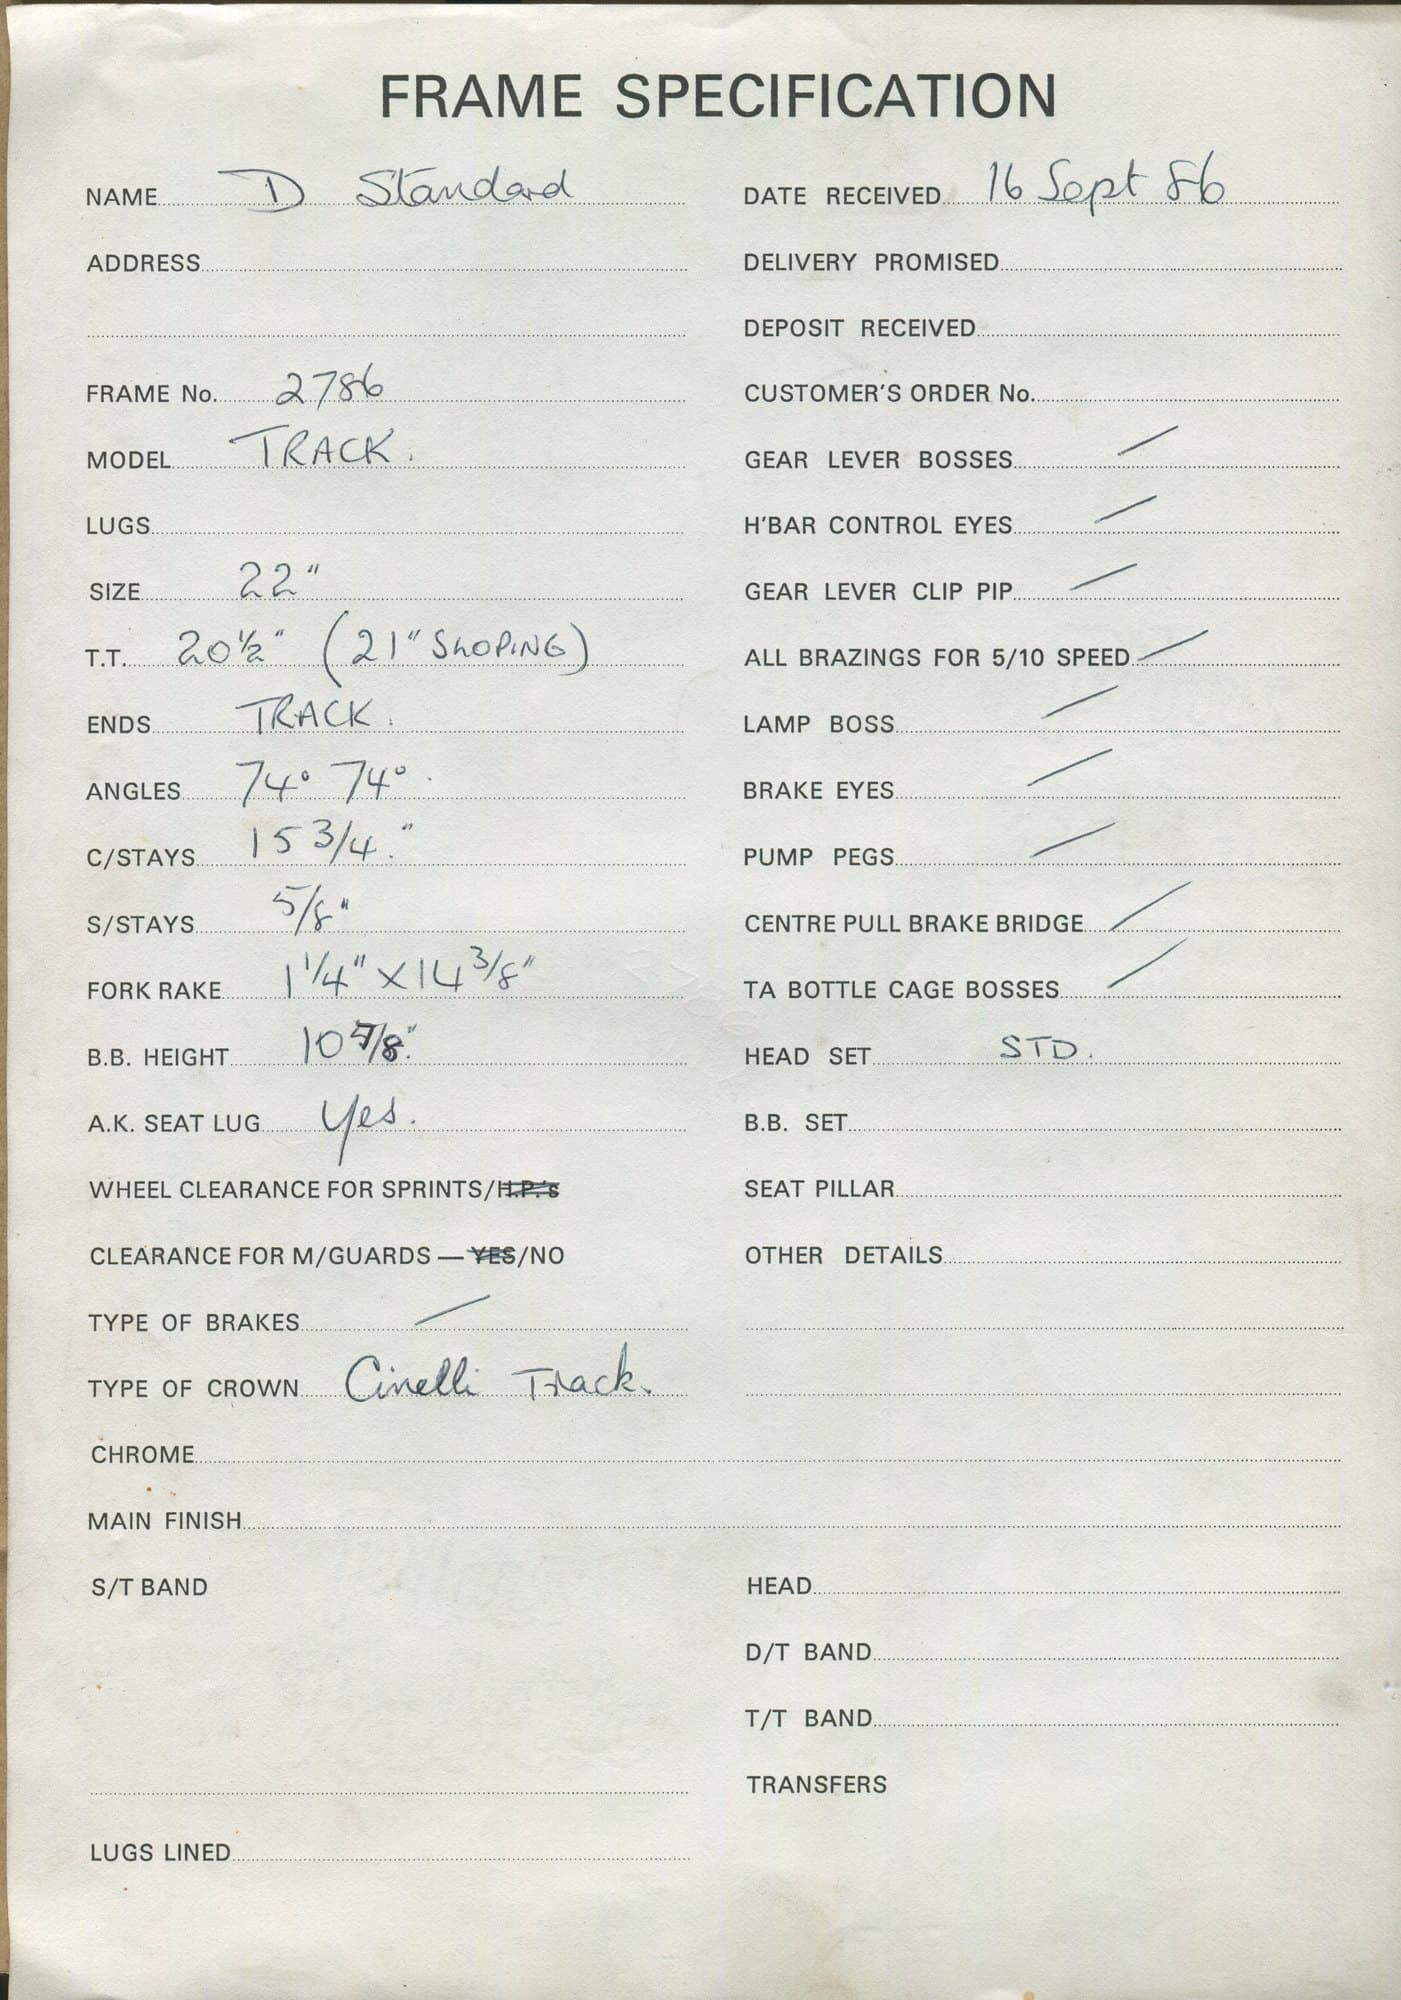 FRAME SPECIFICATION
NAME D Standard
ADDRESS
FRAME No. 2786
MODEL TRACK.
LUGS
SIZE 22"
T.T. 20 1/2" (21" SLOPING)
ENDS TRACK.
ANGLES 74° 74°.
C/STAYS 15 3/4."
S/STAYS 5/8"
FORK RAKE 1 1/4" X 14 3/8"
B.B. HEIGHT 10 7/8."
A.K. SEAT LUG Yes.
WHEEL CLEARANCE FOR SPRINTS/H.P.'s
CLEARANCE FOR M/GUARDS — YES/NO
TYPE OF BRAKES /
TYPE OF CROWN Cinelli Track.
CHROME
MAIN FINISH
S/T BAND
LUGS LINED
DATE RECEIVED 16 Sept 86
DELIVERY PROMISED
DEPOSIT RECEIVED
CUSTOMER'S ORDER No.
GEAR LEVER BOSSES /
H'BAR CONTROL EYES /
GEAR LEVER CLIP PIP /
ALL BRAZINGS FOR 5/10 SPEED /
LAMP BOSS /
BRAKE EYES /
PUMP PEGS /
CENTRE PULL BRAKE BRIDGE /
TA BOTTLE CAGE BOSSES /
HEAD SET STD.
B.B. SET
SEAT PILLAR
OTHER DETAILS
HEAD
D/T BAND
T/T BAND
TRANSFERS